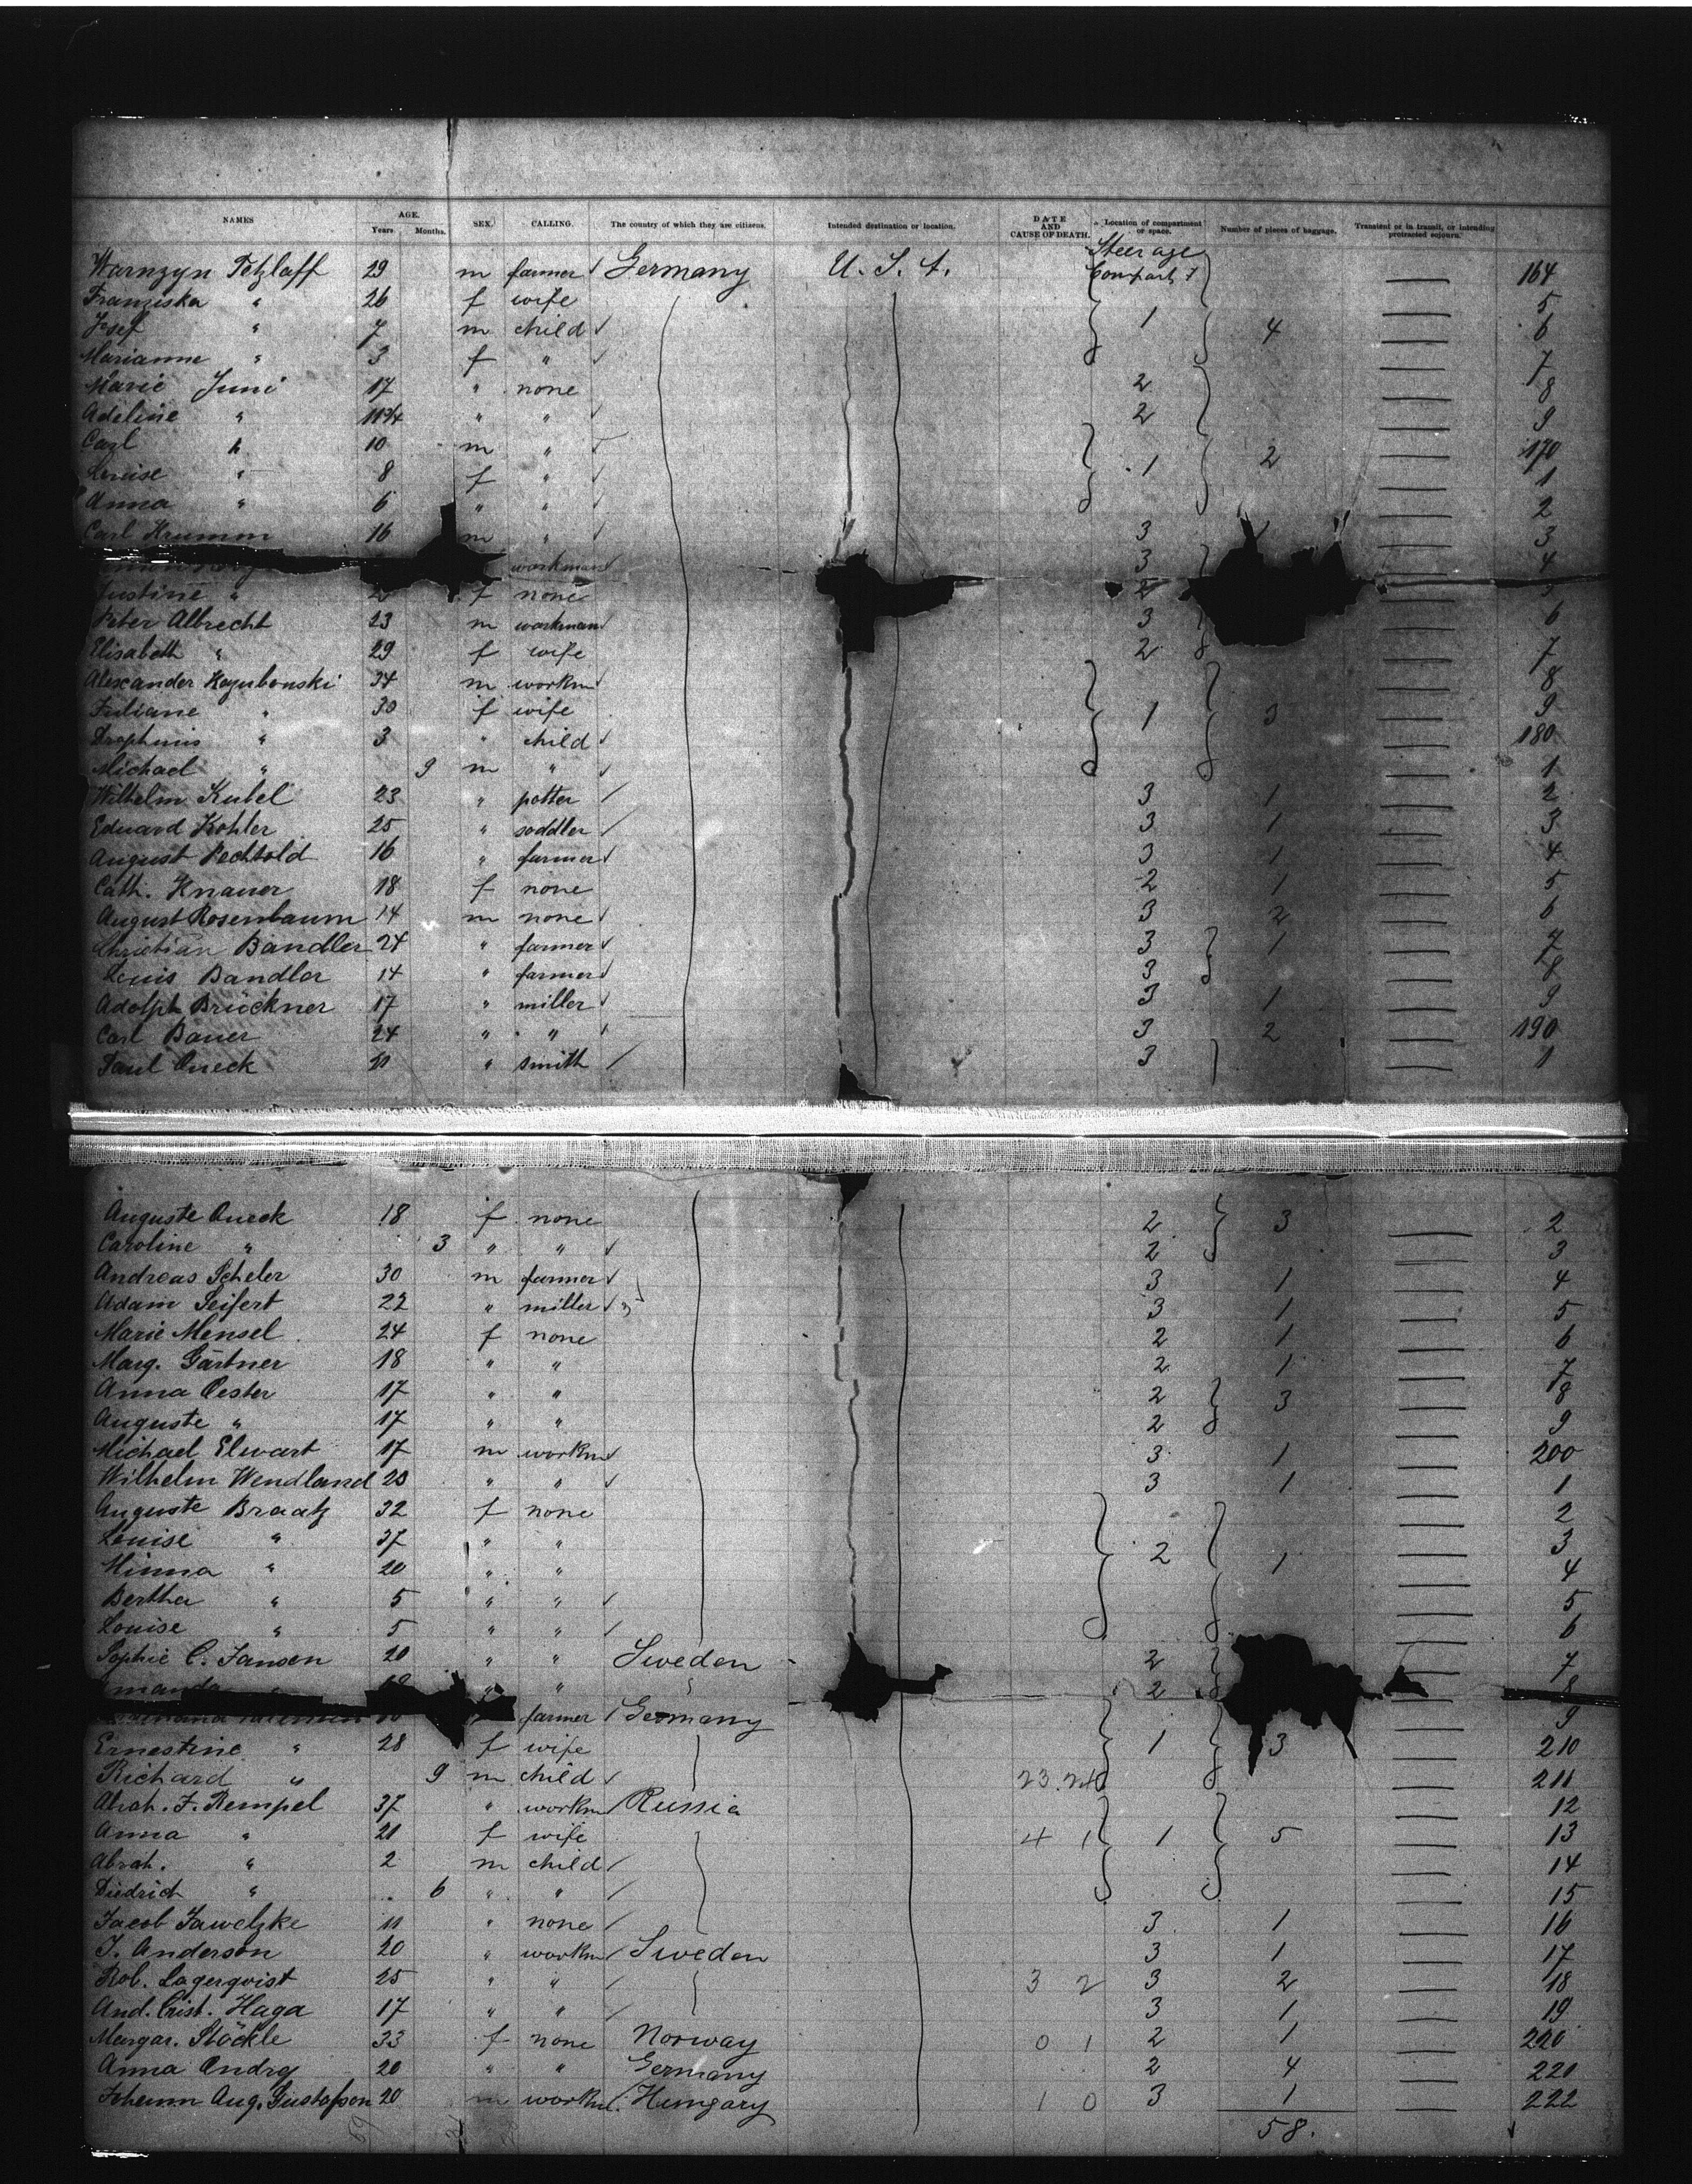 NAMES AGE. Years. Months. SEX. CALLING. The country of which they are citizens. Intended destination or location. DATE AND CAUSE OF DEATH. Location of compartment or space. Number of pieces of baggage. Transient or in transit, or intending protracted sojourn.
Steerage
Tetzlaff 29 m farmer Germany U. S. A. Compart 164
Franziska " 26 f wife 5
Josef " 7 m child 1 4 6
Marianne " 3 f " 7
Marie Juni 17 " none 2 8
Adeline " 11¾ " " 2 9
Carl " 10 m " 170
Louise " 8 f " 1 2 1
Anna " 6 " " 2
Carl Krumm 16 m " 3 3
workman 3 4
Justine " f none 2 5
Peter Albrecht 23 m workman 3 6
Elisabeth " 29 f wife 2 7
Alexander 34 m workm 8
Juliane " 30 f wife 1 3 9
" 3 " child 180
Michael " 9 m " 1
Wilhelm Kubel 23 " potter 3 1 2
Eduard Kohler 25 " saddler 3 1 3
August Pechtold 16 " farmer 3 1 4
Cath. Knauer 18 f none 2 1 5
August Rosenbaum 14 m none 3 2 6
Christian Bandler 24 " farmer 3 1 7
Louis Bandler 14 " farmer 3 8
Adolph Brückner 17 " miller 3 1 9
Carl Bauer 24 " " 3 2 190
Paul Queck 21 " smith 3 1
Auguste Queck 18 f none 2 3 2
Caroline " 3 " " 2 3
Andreas Scheler 30 m farmer 3 1 4
Adam Seifert 22 " miller 3 1 5
Marie Mensel 24 f none 2 1 6
Marg. Gärtner 18 " " 2 1 7
Anna Oester 17 " " 2 3 8
Auguste " 17 " " 2 9
Michael Elwart 17 m workm 3 1 200
Wilhelm Wendland 23 " " 3 1 1
Auguste Braatz 32 f none 2
Louise " 37 " " 2 3
Minna " 20 " " 1 4
Bertha " 5 " " 5
Louise " 5 " " 6
Sophie C. Jansen 20 " " Sweden 2 7
" " 2 8
farmer Germany 9
Ernestine " 28 f wife 1 3 210
Richard " 9 m child 23 24 211
Abrah. F. Rempel 37 " workm Russia 12
Anna " 21 f wife 4 1 1 5 13
Abrah. " 2 m child 14
Diedrich " 6 " " 15
Jacob Jawelzke 11 " none 3 1 16
J. Anderson 20 " workm Sweden 3 1 17
Rob. Lagerqvist 25 " " 3 2 3 2 18
And. Crist. Haga 17 " " 3 1 19
Margar. Stöckle 33 f none Norway 0 1 2 1 220
Anna Andrg 20 " " Germany 2 4 221
Johann Aug. Gustafson 20 m workm Hungary 1 0 3 1 222
58.